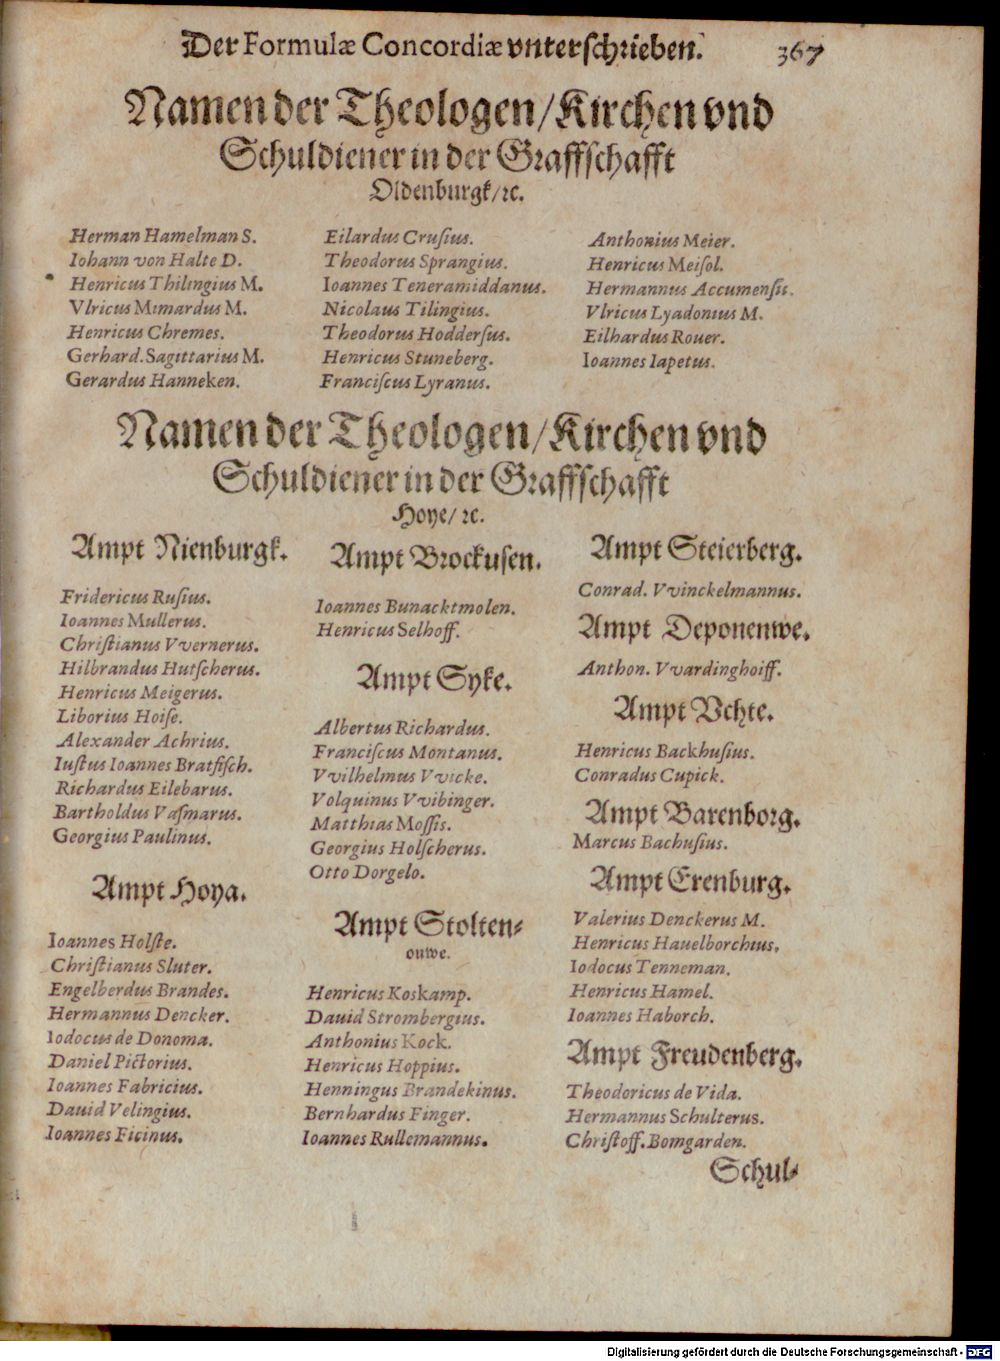 Der Formulæ Concordiæ vnterſchrieben. 367
Namen der Theologen/Kirchen vnd
Schuldiener in der Graffſchafft
Oldenburgk/ꝛc.
Herman Hamelman S.
Iohann von Halte D.
Henricus Thilingius M.
Vlricus Mimardus M.
Henricus Chremes.
Gerhard. Sagittarius M.
Gerardus Hanneken.
Eilardus Cruſius.
Theodorus Sprangius.
Ioannes Teneramiddanus.
Nicolaus Tilingius.
Theodorus Hodderſus.
Henricus Stuneberg.
Franciſcus Lyranus.
Anthonius Meier.
Henricus Meiſol.
Hermannus Accumenſis.
Vlricus Lyadonius M.
Eilhardus Rouer.
Ioannes Iapetus.
Namen der Theologen/Kirchen vnd
Schuldiener in der Graffſchafft
Hoye/ꝛc.
Ampt Nienburgk.
Fridericus Ruſius.
Ioannes Mullerus.
Chriſtianus Vvernerus.
Hilbrandus Hutſcherus.
Henricus Meigerus.
Liborius Hoiſe.
Alexander Achrius.
Iuſtus Ioannes Bratfiſch.
Richardus Eilebarus.
Bartholdus Vaſmarus.
Georgius Paulinus.
Ampt Hoya.
Ioannes Holſte.
Chriſtianus Sluter.
Engelberdus Brandes.
Hermannus Dencker.
Iodocus de Donoma.
Daniel Pictorius.
Ioannes Fabricius.
Dauid Velingius.
Ioannes Ficinus.
Ampt Brockuſen.
Ioannes Bunacktmolen.
Henricus Selhoff.
Ampt Syke.
Albertus Richardus.
Franciſcus Montanus.
Vvilhelmus Vvicke.
Volquinus Vvibinger.
Matthias Moſſis.
Georgius Holſcherus.
Otto Dorgelo.
Ampt Stolten⸗
ouwe.
Henricus Koskamp.
Dauid Strombergius.
Anthonius Kock.
Henricus Hoppius.
Henningus Brandekinus.
Bernhardus Finger.
Ioannes Rullemannus.
Ampt Steierberg.
Conrad. Vvinckelmannus.
Ampt Deponenwe.
Anthon. Vvardinghoiff.
Ampt Vchte.
Henricus Backhuſius.
Conradus Cupick.
Ampt Barenborg.
Marcus Bachuſius.
Ampt Erenburg.
Valerius Denckerus M.
Henricus Hauelborchius.
Iodocus Tenneman.
Henricus Hamel.
Ioannes Haborch.
Ampt Freudenberg.
Theodoricus de Vida.
Hermannus Schulterus.
Chriſtoff. Bomgarden.
Schul⸗
Digitalisierung gefördert durch die Deutsche Forschungsgemeinschaft - DFG